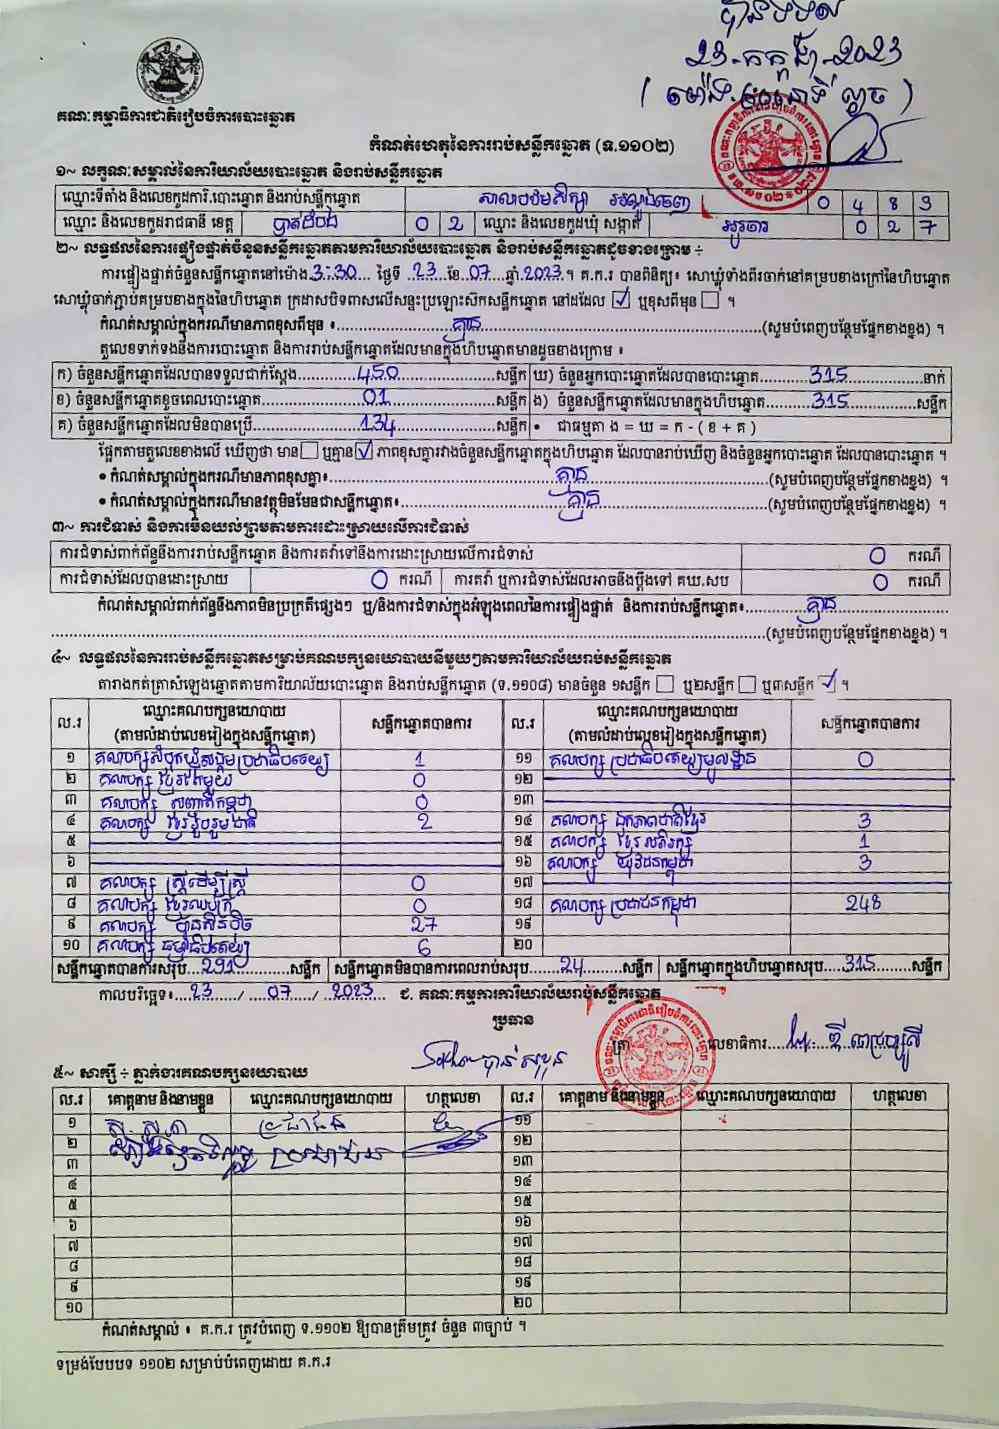 បានមមល
23-កក្កដា-2023
គណៈកម្មាធិការជាតិរៀបចំការបោះឆ្នោត
កំណត់ហេតុនៃការរាប់សន្លឹកឆ្នោត (ទ.១១០២)
១~ លក្ខណៈសម្គាល់នៃការិយាល័យបោះឆ្នោត និងរាប់សន្លឹកឆ្នោត
ឈ្មោះទីតាំង និងលេខកូដការិ.បោះឆ្នោត និងរាប់សន្លឹកឆ្នោត សាលាបឋមសិក្សា 0 4 8 9
ឈ្មោះ និងលេខកូដរាជធានី ខេត្ត បាត់ដំបង 0 2 ឈ្មោះ និងលេខកូដឃុំ សង្កាត់ 0 2 7
២~ លទ្ធផលនៃការផ្ទៀងផ្ទាត់ចំនួនសន្លឹកឆ្នោតតាមការិយាល័យបោះឆ្នោត និងរាប់សន្លឹកឆ្នោតដូចខាងក្រោម ÷
ការផ្ទៀងផ្ទាត់ចំនួនសន្លឹកឆ្នោតនៅម៉ោង 3:30 ថ្ងៃទី 23 ខែ 07 ឆ្នាំ 2023 ។ គ.ក.រ បានពិនិត្យ៖ សោឃ្លុំទាំងពីរចាក់នៅគម្របខាងក្រៅនៃហិបឆ្នោត
សោឃ្លុំចាក់ភ្ជាប់គម្របខាងក្នុងនៃហិបឆ្នោត ក្រដាសបិទពាសលើសន្ទះប្រឡោះសឹកសន្លឹកឆ្នោត នៅដដែល ☑ ឬខុសពីមុន ☐ ។
កំណត់សម្គាល់ក្នុងករណីមានភាពខុសពីមុន ៖ គ្មាន (សូមបំពេញបន្ថែមផ្នែកខាងខ្នង) ។
តួលេខទាក់ទងនឹងការបោះឆ្នោត និងការរាប់សន្លឹកឆ្នោតដែលមានក្នុងហិបឆ្នោតមានដូចខាងក្រោម ៖
ក) ចំនួនសន្លឹកឆ្នោតដែលបានទទួលជាក់ស្តែង 450 សន្លឹក ឃ) ចំនួនអ្នកបោះឆ្នោតដែលបានបោះឆ្នោត 315 នាក់
ខ) ចំនួនសន្លឹកឆ្នោតខូចពេលបោះឆ្នោត 01 សន្លឹក ង) ចំនួនសន្លឹកឆ្នោតដែលមានក្នុងហិបឆ្នោត 315 សន្លឹក
គ) ចំនួនសន្លឹកឆ្នោតដែលមិនបានប្រើ 134 សន្លឹក • ជាធម្មតា ង = ឃ = ក - ( ខ + គ )
ផ្អែកតាមតួលេខខាងលើ ឃើញថា មាន ☐ ឬគ្មាន ☑ ភាពខុសគ្នារវាងចំនួនសន្លឹកឆ្នោតក្នុងហិបឆ្នោត ដែលបានរាប់ឃើញ និងចំនួនអ្នកបោះឆ្នោត ដែលបានបោះឆ្នោត ។
• កំណត់សម្គាល់ក្នុងករណីមានភាពខុសគ្នា៖ គ្មាន (សូមបំពេញបន្ថែមផ្នែកខាងខ្នង) ។
• កំណត់សម្គាល់ក្នុងករណីមានវត្ថុមិនមែនជាសន្លឹកឆ្នោត៖ គ្មាន (សូមបំពេញបន្ថែមផ្នែកខាងខ្នង) ។
៣~ ការជំទាស់ និងការមិនយល់ព្រមតាមការដោះស្រាយលើការជំទាស់
ការជំទាស់ពាក់ព័ន្ធនឹងការរាប់សន្លឹកឆ្នោត និងការតវ៉ាទៅនឹងការដោះស្រាយលើការជំទាស់ 0 ករណី
ការជំទាស់ដែលបានដោះស្រាយ 0 ករណី ការតវ៉ា ឬការជំទាស់ដែលអាចនឹងប្តឹងទៅ គឃ.សប 0 ករណី
កំណត់សម្គាល់ពាក់ព័ន្ធនឹងភាពមិនប្រក្រតីផ្សេងៗ ឬ/និងការជំទាស់ក្នុងអំឡុងពេលនៃការផ្ទៀងផ្ទាត់ និងការរាប់សន្លឹកឆ្នោត៖ គ្មាន
(សូមបំពេញបន្ថែមផ្នែកខាងខ្នង) ។
៤~ លទ្ធផលនៃការរាប់សន្លឹកឆ្នោតសម្រាប់គណបក្សនយោបាយនីមួយៗតាមការិយាល័យរាប់សន្លឹកឆ្នោត
តារាងកត់ត្រាសំឡេងឆ្នោតតាមការិយាល័យបោះឆ្នោត និងរាប់សន្លឹកឆ្នោត (ទ.១១០៨) មានចំនួន ១សន្លឹក ☐ ឬ២សន្លឹក ☐ ឬ៣សន្លឹក ☑ ។
ល.រ ឈ្មោះគណបក្សនយោបាយ (តាមលំដាប់លេខរៀងក្នុងសន្លឹកឆ្នោត) សន្លឹកឆ្នោតបានការ ល.រ ឈ្មោះគណបក្សនយោបាយ (តាមលំដាប់លេខរៀងក្នុងសន្លឹកឆ្នោត) សន្លឹកឆ្នោតបានការ
១ គណបក្សសំបុកឃ្មុំសង្គមប្រជាធិបតេយ្យ 1 ១១ គណបក្ស ប្រជាធិបតេយ្យមូលដ្ឋាន 0
២ គណបក្ស ខ្មែរតែមួយ 0 ១២
៣ គណបក្ស សញ្ជាតិកម្ពុជា 0 ១៣
៤ គណបក្ស ខ្មែររួបរួមជាតិ 2 ១៤ គណបក្ស ឯកភាពជាតិខ្មែរ 3
៥ ១៥ គណបក្ស ខ្មែរអភិរក្ស 1
៦ ១៦ គណបក្ស យុវជនកម្ពុជា 3
៧ គណបក្ស ស្ត្រីដើម្បីស្ត្រី 0 ១៧
៨ គណបក្ស ខ្មែរឈប់ក្រ 0 ១៨ គណបក្ស ប្រជាជនកម្ពុជា 248
៩ គណបក្ស ហ៊្វុនស៊ិនប៉ិច 27 ១៩
១០ គណបក្ស ធម្មាធិបតេយ្យ 6 ២០
សន្លឹកឆ្នោតបានការសរុប 291 សន្លឹក សន្លឹកឆ្នោតមិនបានការពេលរាប់សរុប 24 សន្លឹក សន្លឹកឆ្នោតក្នុងហិបឆ្នោតសរុប 315 សន្លឹក
កាលបរិច្ឆេទ៖ 23 / 07 / 2023 ជ. គណៈកម្មការការិយាល័យរាប់សន្លឹកឆ្នោត
ប្រធាន
ត្រា លេខាធិការ
៥~ សាក្សី ÷ ភ្នាក់ងារគណបក្សនយោបាយ
ល.រ គោត្តនាម និងនាមខ្លួន ឈ្មោះគណបក្សនយោបាយ ហត្ថលេខា ល.រ គោត្តនាម និងនាមខ្លួន ឈ្មោះគណបក្សនយោបាយ ហត្ថលេខា
១ ប្រជាជន ១១
២ ប្រជាជន ១២
៣ ១៣
៤ ១៤
៥ ១៥
៦ ១៦
៧ ១៧
៨ ១៨
៩ ១៩
១០ ២០
កំណត់សម្គាល់ ៖ គ.ក.រ ត្រូវបំពេញ ទ.១១០២ ឱ្យបានត្រឹមត្រូវ ចំនួន ៣ច្បាប់ ។
ទម្រង់បែបបទ ១១០២ សម្រាប់បំពេញដោយ គ.ក.រ